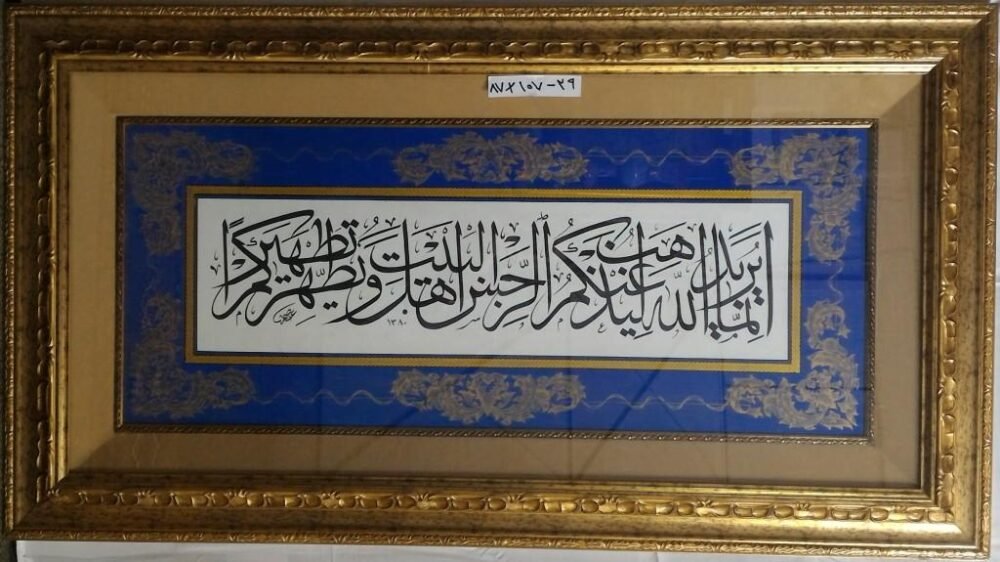 ۸۷×۱۰۷-۲۹
إنما يريد الله ليذهب عنكم الرجس أهل البيت ويطهركم تطهيرا
۱۳۸۰